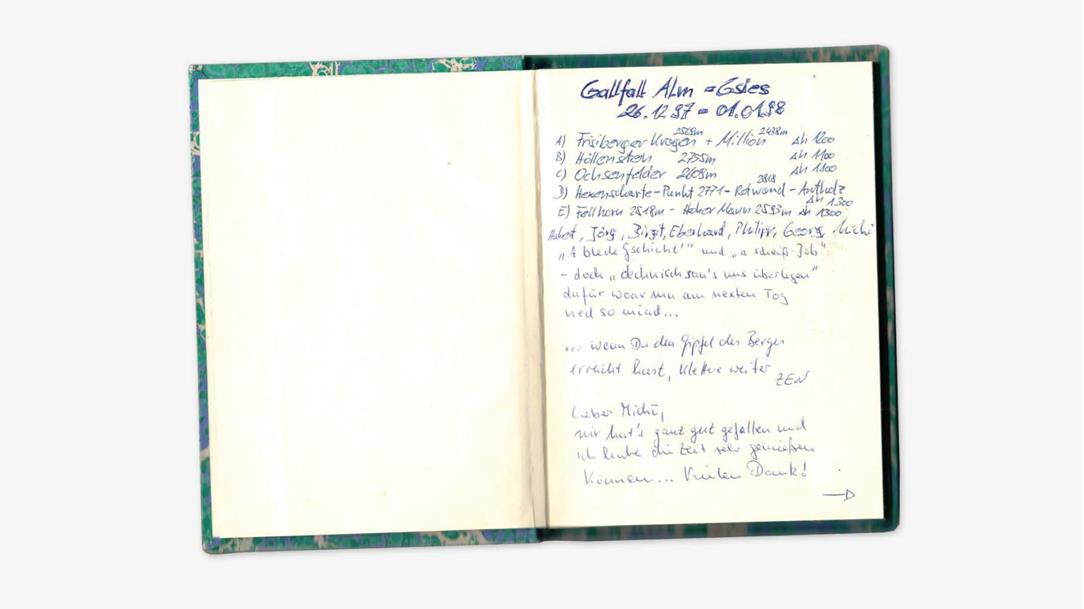 Gallfall Alm = Gsies
26.12.97 = 01.01.98
2569m 2438m
A) Frisiberger Kragen + Million Δh 1200
B) Höllenstein 2755m Δh 1100
C) Ochsenfelder 2608m Δh 1100
2818
D) Hexenscharte - Punkt 2771 - Rotwand - Antholz
Δh 1300
E) Fellhorn 2518m - Hoher Mann 2593m Δh 1300
Jörg, Birgit, Eberhard, Philipp, Georg, Michi
„A blede Gschicht'" und „a scheiß-Job"
- doch „dechnisch san's uns überlegen"
dafür woar ma am nexten Tog
ned so miad...
... wenn Du den Gipfel des Berges
erreicht hast, klettre weiter
ZEN
Lieber Michi,
mir hat's ganz gut gefallen und
ich habe die Zeit sehr genießen
können... Vielen Dank!